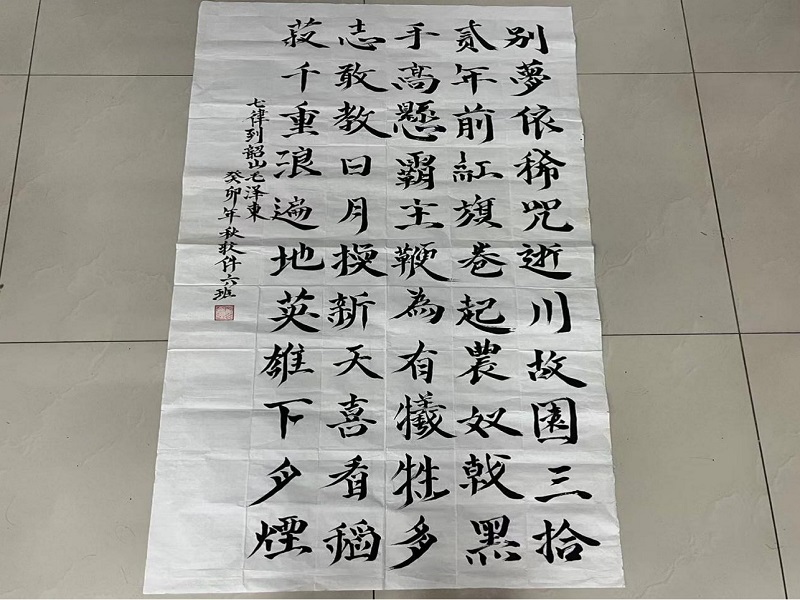 别夢依稀咒逝川故園三拾
貳年前紅旗卷起農奴戟黑
手高懸霸主鞭為有犧牲多
志敢教日月換新天喜看稻
菽千重浪遍地英雄下夕煙
七律到韶山毛泽東
癸卯年秋软件六班